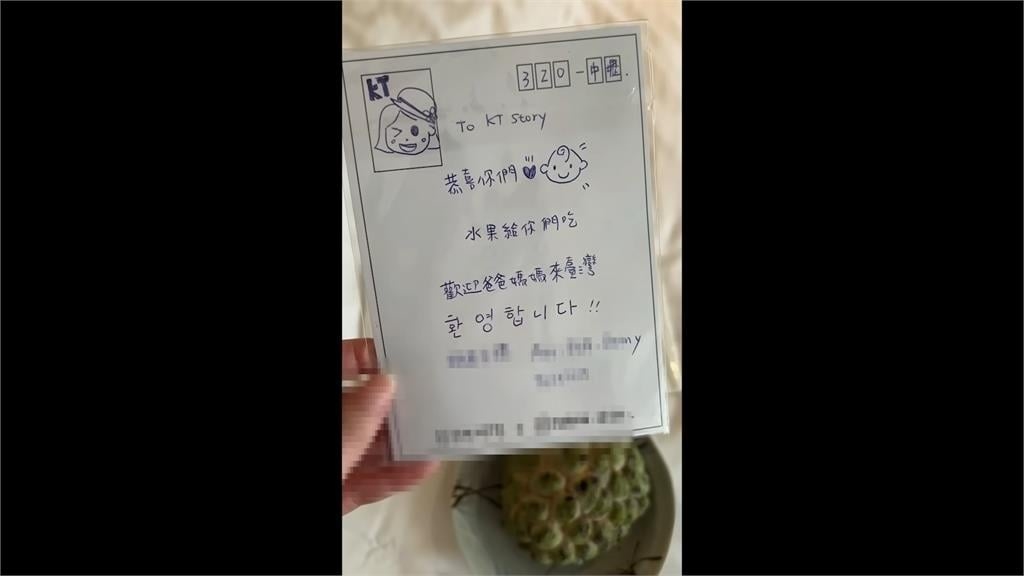 320-中壢.
KT
To KT Story
恭喜你們
水果給你們吃
歡迎爸爸媽媽來臺灣
환영합니다!!